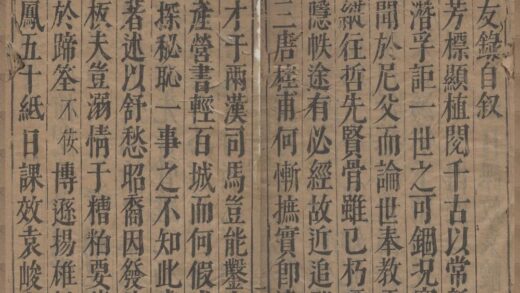 友錄自叙
芳標顯植閱千古以常
潛孚詎一世之可錮況
聞於尼父而論世奉教
縱往哲先賢骨雖已朽
隱帙途有必經故近追
唐桎甫何慚摭實即
才于兩漢司馬豈能鑿
產營書輕百城而何假
探秘恥一事之不知此
著述以舒愁昭裔因發
板夫豈溺情于糟粕要
於蹄筌不佞博遜揚雄
鳳五十紙日課效袁峻